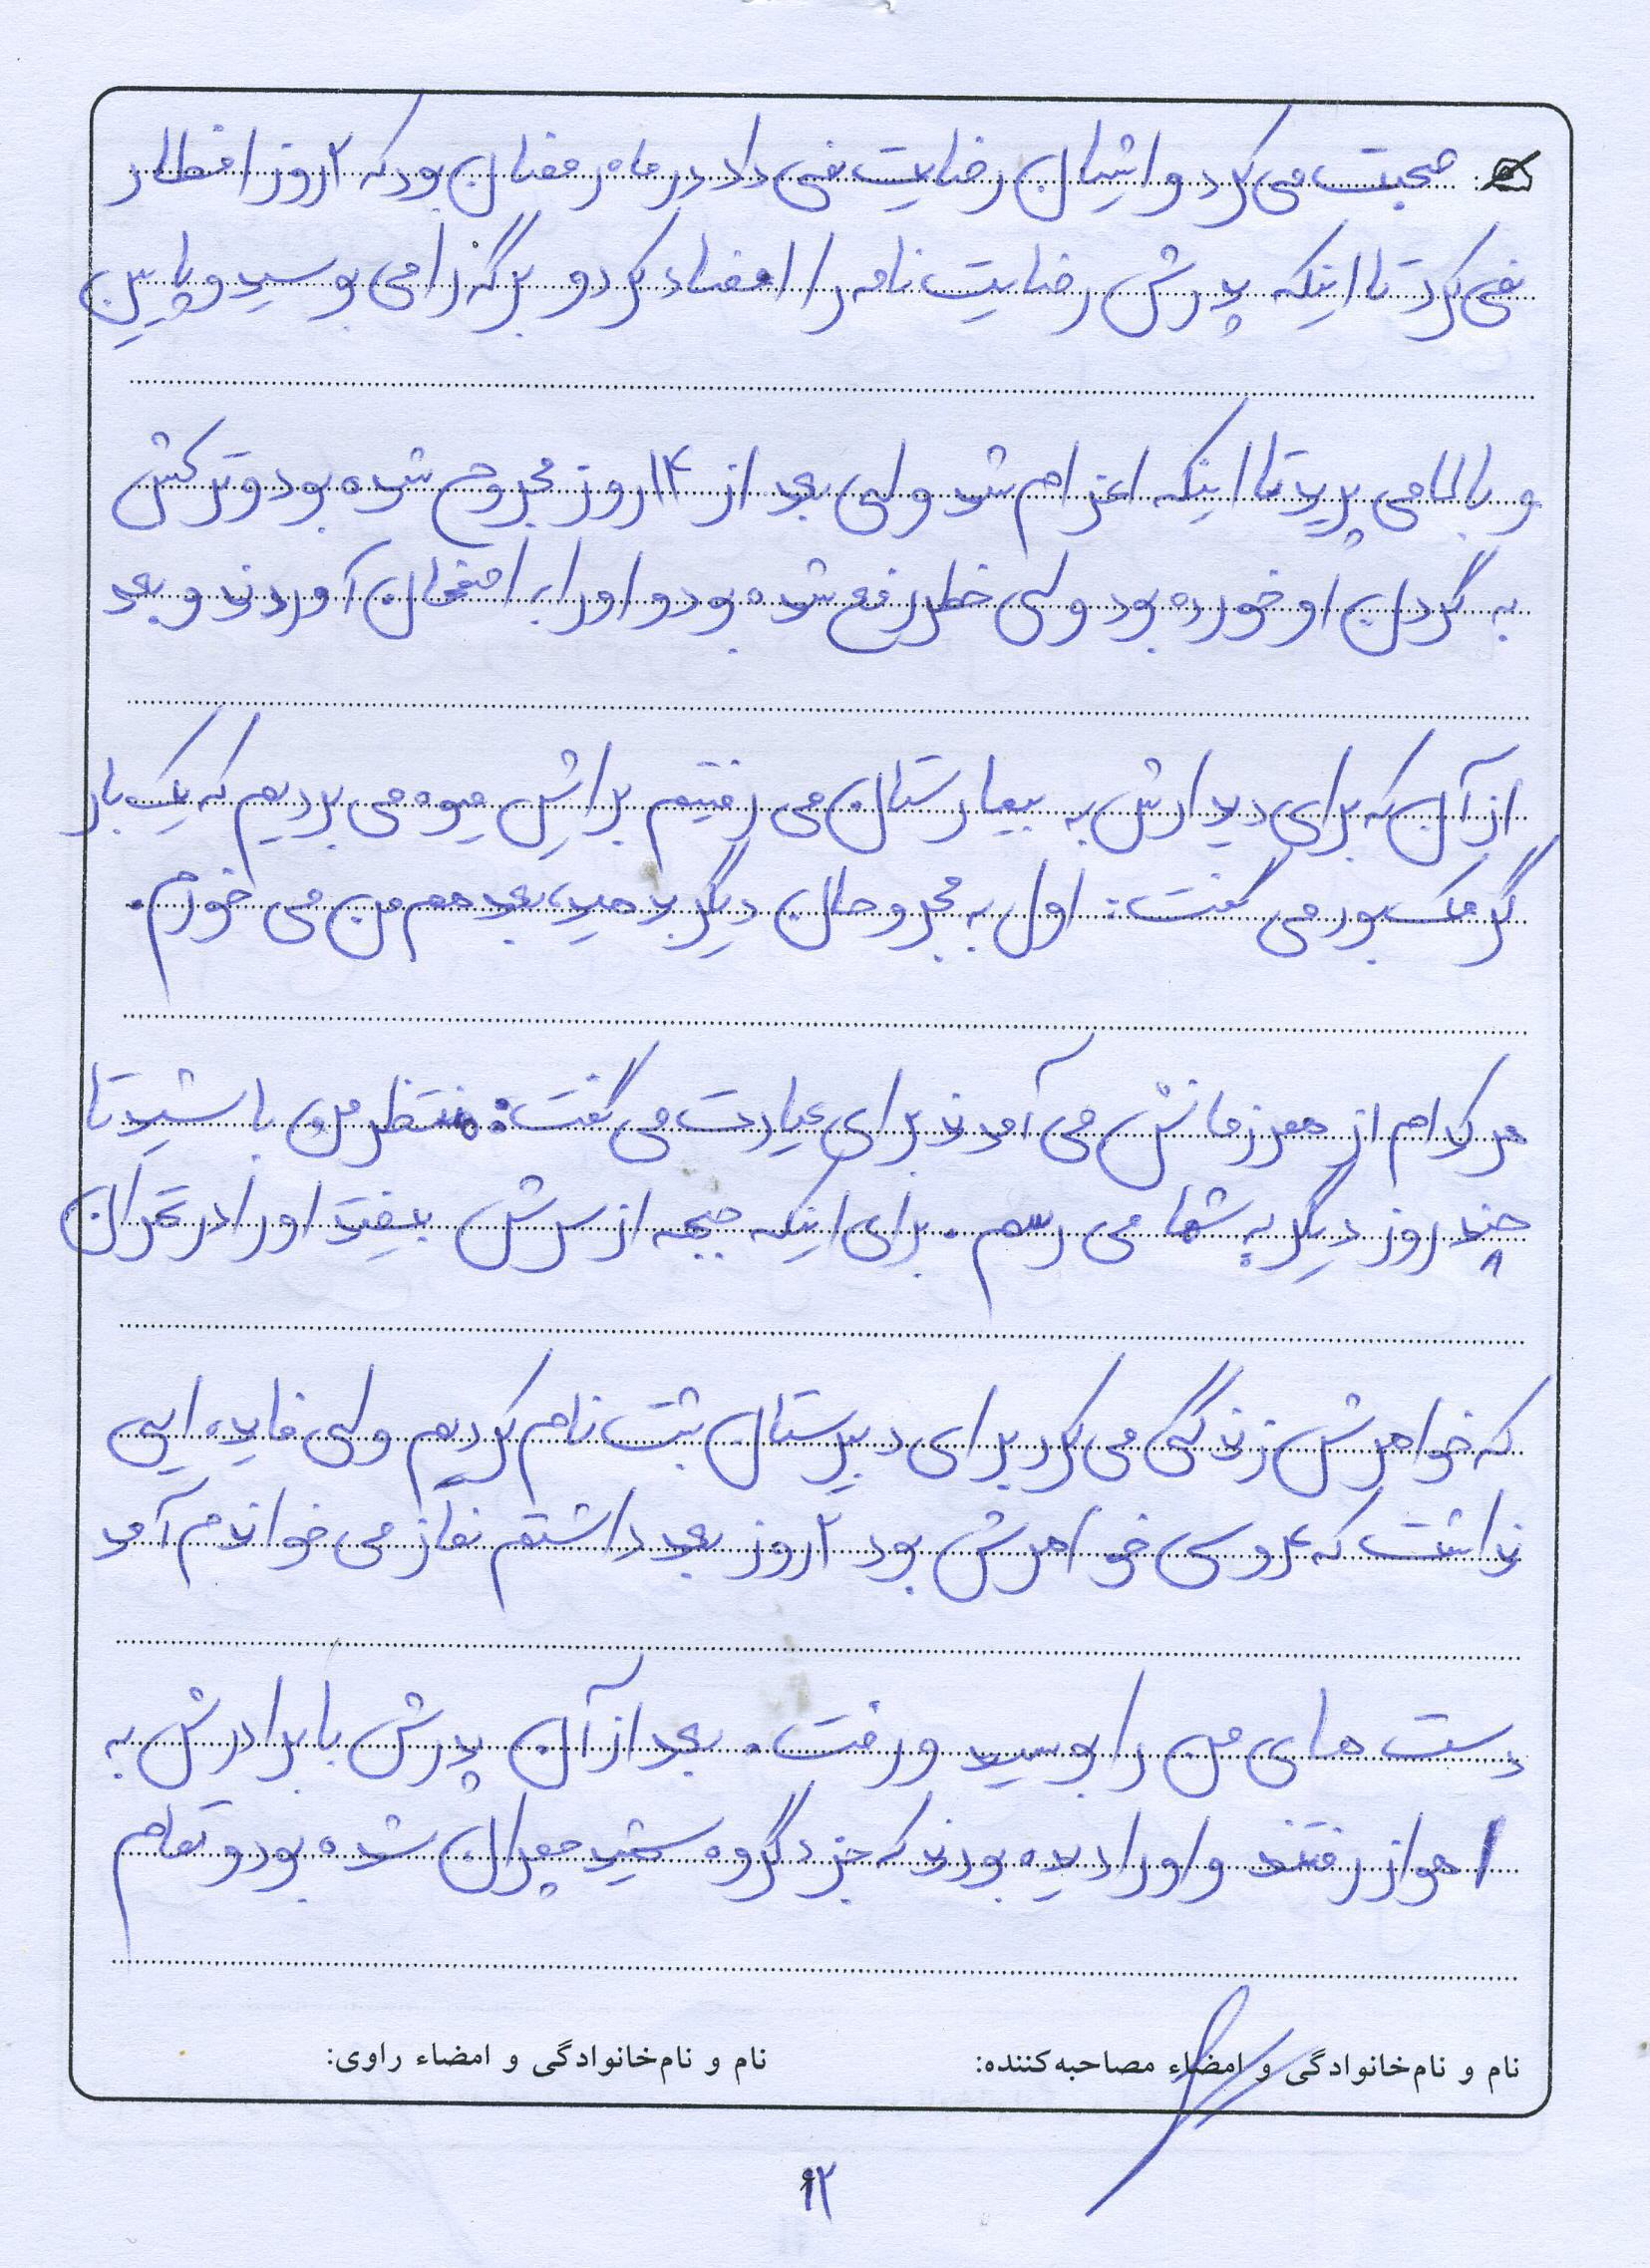 صحبت می کرد و ایشان رضایت نمی داد در ماه رمضان بود که ۲ روز افطار
نمی کرد تا اینکه پدرش رضایت نامه را امضاء کرد و برگه را می بوسید و پایین
و بالا می پرید تا اینکه اعزام شد ولی بعد از ۱۴ روز مجروح شده بود و ترکش
به گردن او خورده بود ولی خطر رفع شده بود و او را به اصفهان آوردند و بعد
از آن که برای دیدارش به بیمارستان می رفتیم برایش میوه می بردیم که یک بار
گرمک بود می گفت: اول به مجروحان دیگر بدهید، بعد هم من می خورم.
هر کدام از همرزمانش می آمدند برای عیادت می گفت: منتظر من باشید تا
چند روز دیگر به شما می رسم. برای اینکه جبهه از سرش بیفتد او را در تهران
که خواهرش زندگی می کرد برای دبیرستان ثبت نام کردیم ولی فایده ایی
نداشت که عروسی خواهرش بود ۲ روز بعد داشتم نماز می خواندم آمد
دست های من را بوسید و رفت. بعد از آن پدرش با برادرش به
اهواز رفتند و او را دیده بودند که جزء گروه شهید چمران شده بود و تمام
نام و نام‌خانوادگی و امضاء مصاحبه‌کننده:
نام و نام‌خانوادگی و امضاء راوی: